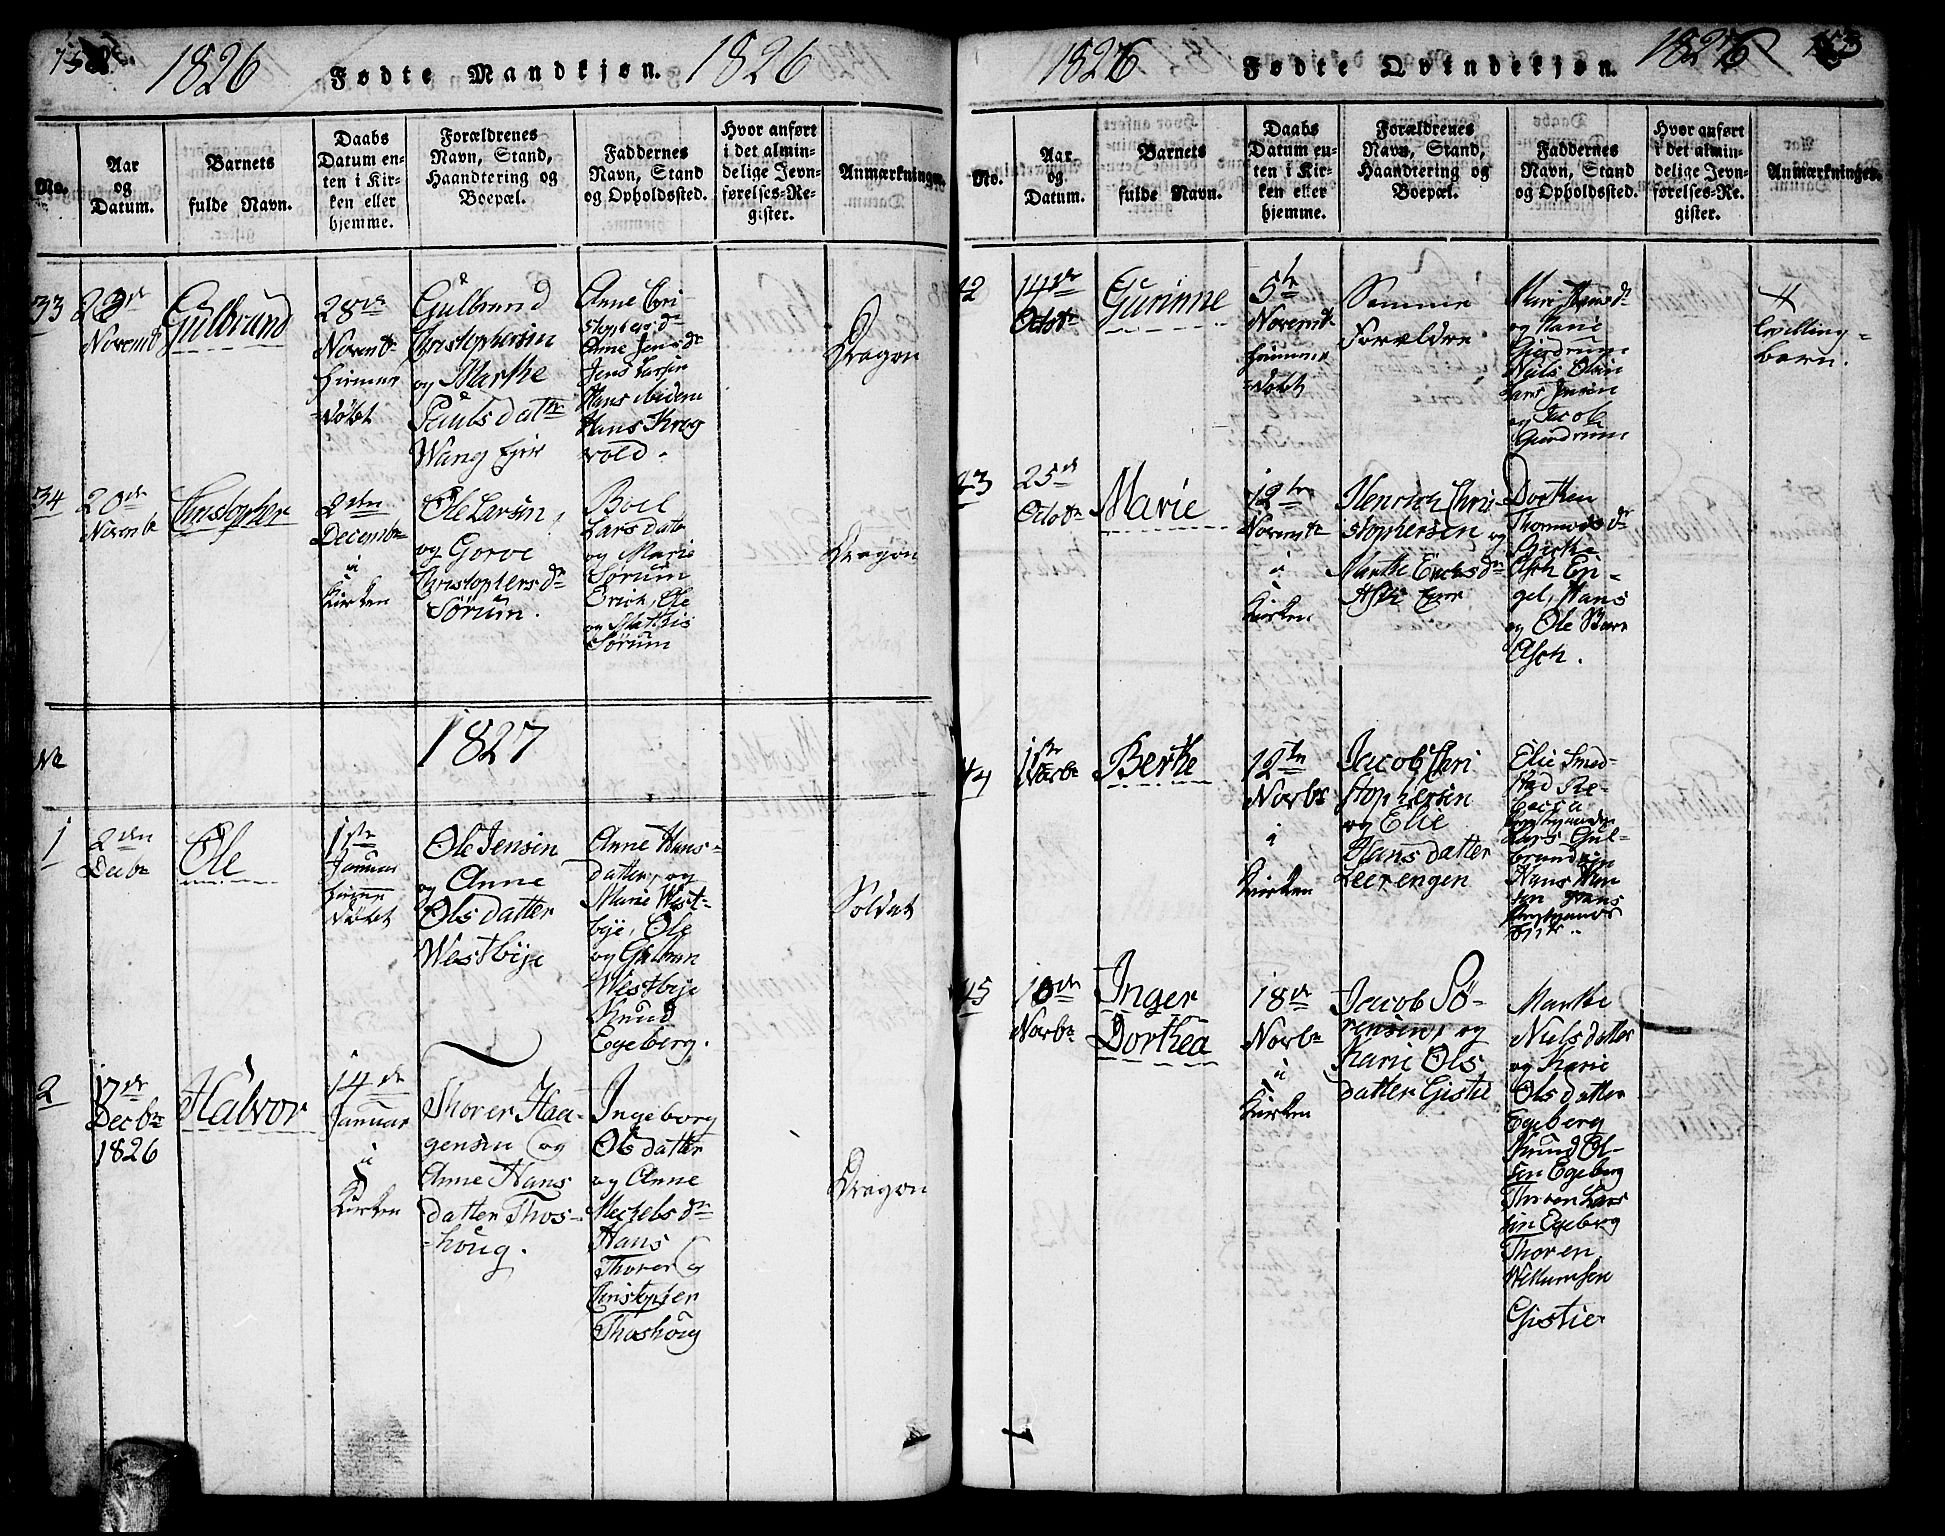 1826
Fødte Mandkjøn.
1826
No.
Aar
og
Datum.
Barnets
fulde Navn.
Daabs
Datum en-
ten i Kir-
ken eller
hjemme.
Forældrenes
Navn, Stand,
Haandtering og
Boepæl.
Faddernes
Navn, Stand
og Opholdssted.
Hvor anført
i det almin-
delige Jevn-
førelses-Re-
gister.
Anmærkninger.
33
Novembr
Gulbrand
28de
Novembr
hjemme
døbt
Gulbrand
Christophersen
og Marthe
Pauls datter
Wang Ejer
Anne Chri-
stophersdr
Anne Jensdr
Jens Larsen
Hans
Hans Krog
vold.
Dragon
34
20de
Novemb
Christopher
2den
Decembr
i
Kirken
Ole Larsen,
og Gorve
Christophersdr
Sørum.
Boel
Larsdatr
og Marie
Sørum
Erich, Ole
og Mathis
Sørum
Dragon
No
1827
1
2den
Decbr
Ole
1ste
Januar
hjemme
døbt
Ole Jensen
og Anne
Ols datter
Westbye
Anne Hans-
datter, og
Marie West-
bye, Ole
og
Westbye
Knud
Egeberg.
Soldat
2
17de
Decbr
1826
Halvor
14de
Januar
i
Kirken
Thorer Haa-
gensen og
Anne Hans
datter Thos-
houg.
Ingeborg
Ols datter
og Anne
Meckelsdr
Hans
Thorer og
Christopher
Thoshoug
Dragon
1826
Fødte Qvindekjøn.
1826
No.
Aar
og
Datum.
Barnets
fulde Navn.
Daabs
Datum en-
ten i Kir-
ken eller
hjemme.
Forældrenes
Navn, Stand,
Haandtering og
Boepæl.
Faddernes
Navn, Stand
og Opholdssted.
Hvor anført
i det almin-
delige Jevn-
førelses-Re-
gister.
Anmærkninger.
42
14de
Octobr
Gurinne
5te
Novembr
hjemme
døbt
Samme
Forældre
Mari Hansdr
og Marie
Gjerdrum
Niels Olsen
Lars Jensen
og Jacob
Gjerdrum
Tvilling-
barn.
43
25de
Octobr
Marie
12te
Novembr
i
Kirken
Henrich Chri-
stophersen og
Marthe Erichsdr
Ask Ejer
Dorthea
Thormodsdr
Asch En-
gel, Hans
og Ole
Asch.
44
1ste
Novbr
Berthe
12te
Novbr
i
Kirken
Jacob Chri
stophersen
og Elie
Hans datter
Leerengen
Elie Smed-
stad Re-
becca
Lars Gul-
brandsen
Hans Han
sen
45
18de
Novbr
i
Kirken
Inger
Dorthea
Novbr
Jacob Sø-
rensen, og
Karie Ols
datter Gistie
Marthe
Niels datter
og Karie
Ols datter
Egeberg
Knud Ol-
sen Egeberg
Thoren Lars
sen Egeberg
Thoren
Willumsen
Gistier